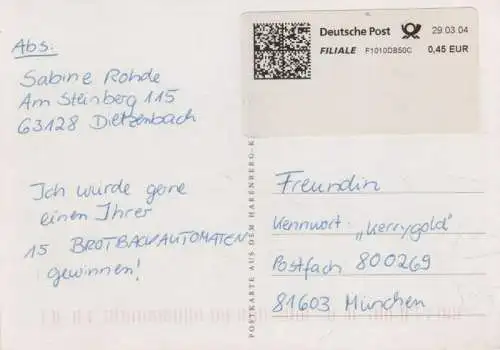 Abs:
Sabine Rohde
Am Steinberg 115
63128 Dietzenbach
Ich würde gerne
einen Ihrer
15 BROTBACKAUTOMATEN
gewinnen!
Deutsche Post 29.03.04
FILIALE F1010DB50C 0,45 EUR
POSTKARTE AUS DEM HARENBERG-K
Freundin
Kennwort „Kerrygold"
Postfach 800269
81603 München